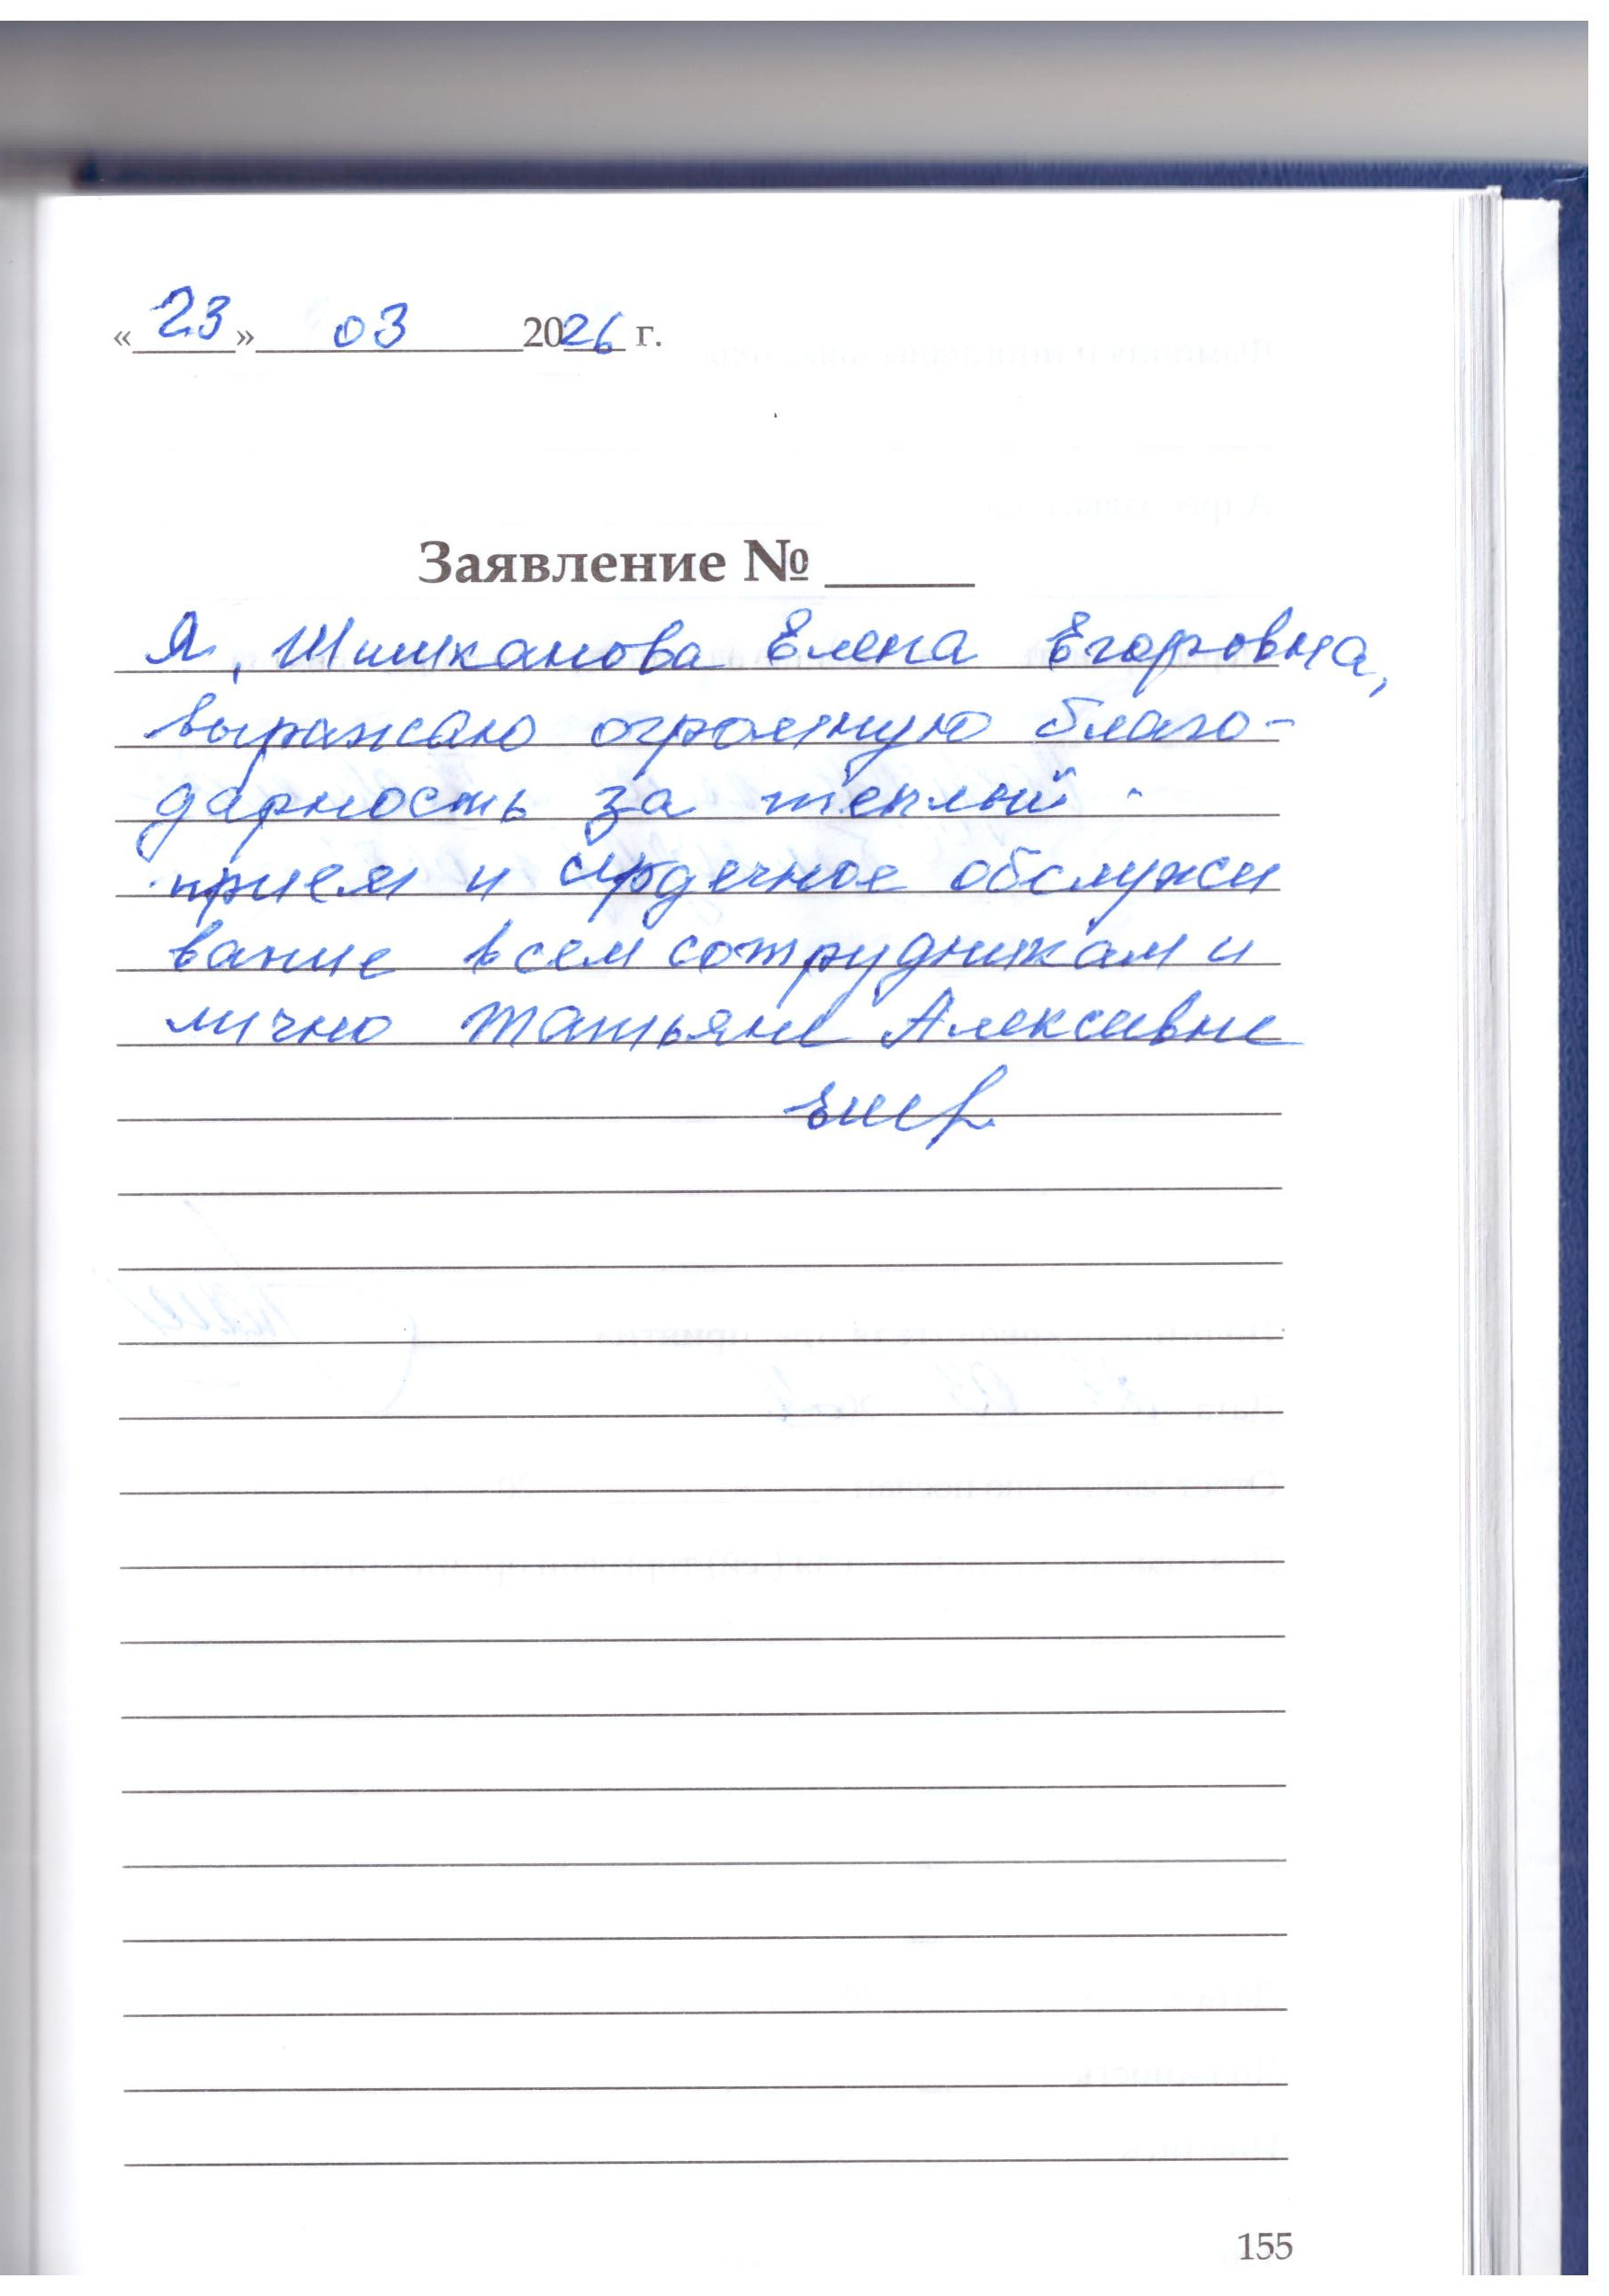 «23» 03 2026 г.
Заявление №
Я, Шишканова Елена Егоровна,
выражаю огромную благо-
дарность за теплый
прием и сердечное обслужи
вание всем сотрудникам и
лично Татьяне Алексевне
155